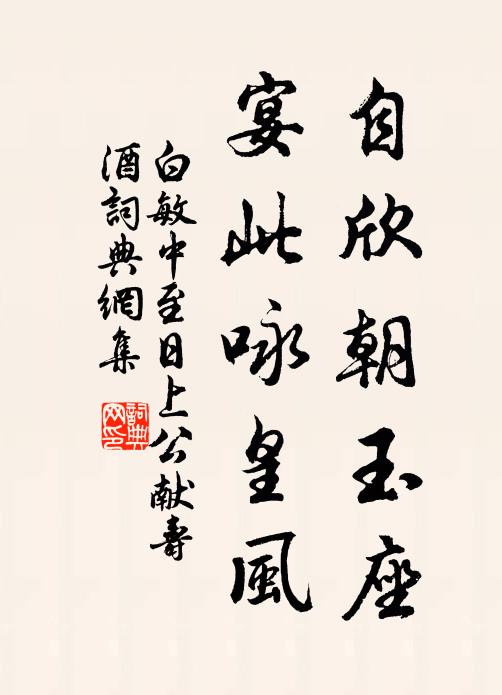 自欣朝玉座
宴此咏皇風
白敏中至日上公献壽
酒詞典網集
詞典網印